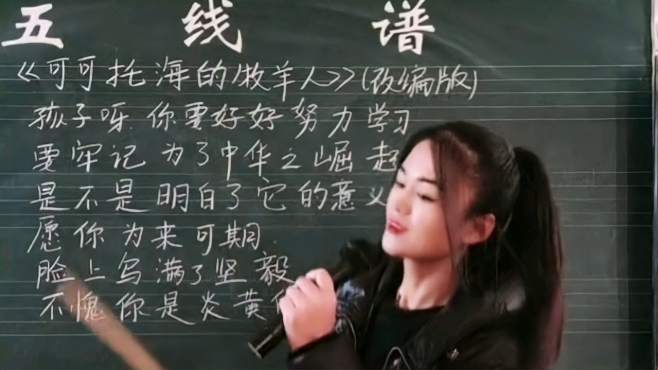 五线谱
《可可托海的牧羊人》(改编版)
孩子呀 你要好好努力学习
要牢记 为了中华之崛起
是不是明白了它的意义
愿你为来可期
脸上写满了坚毅
不愧你是炎黄